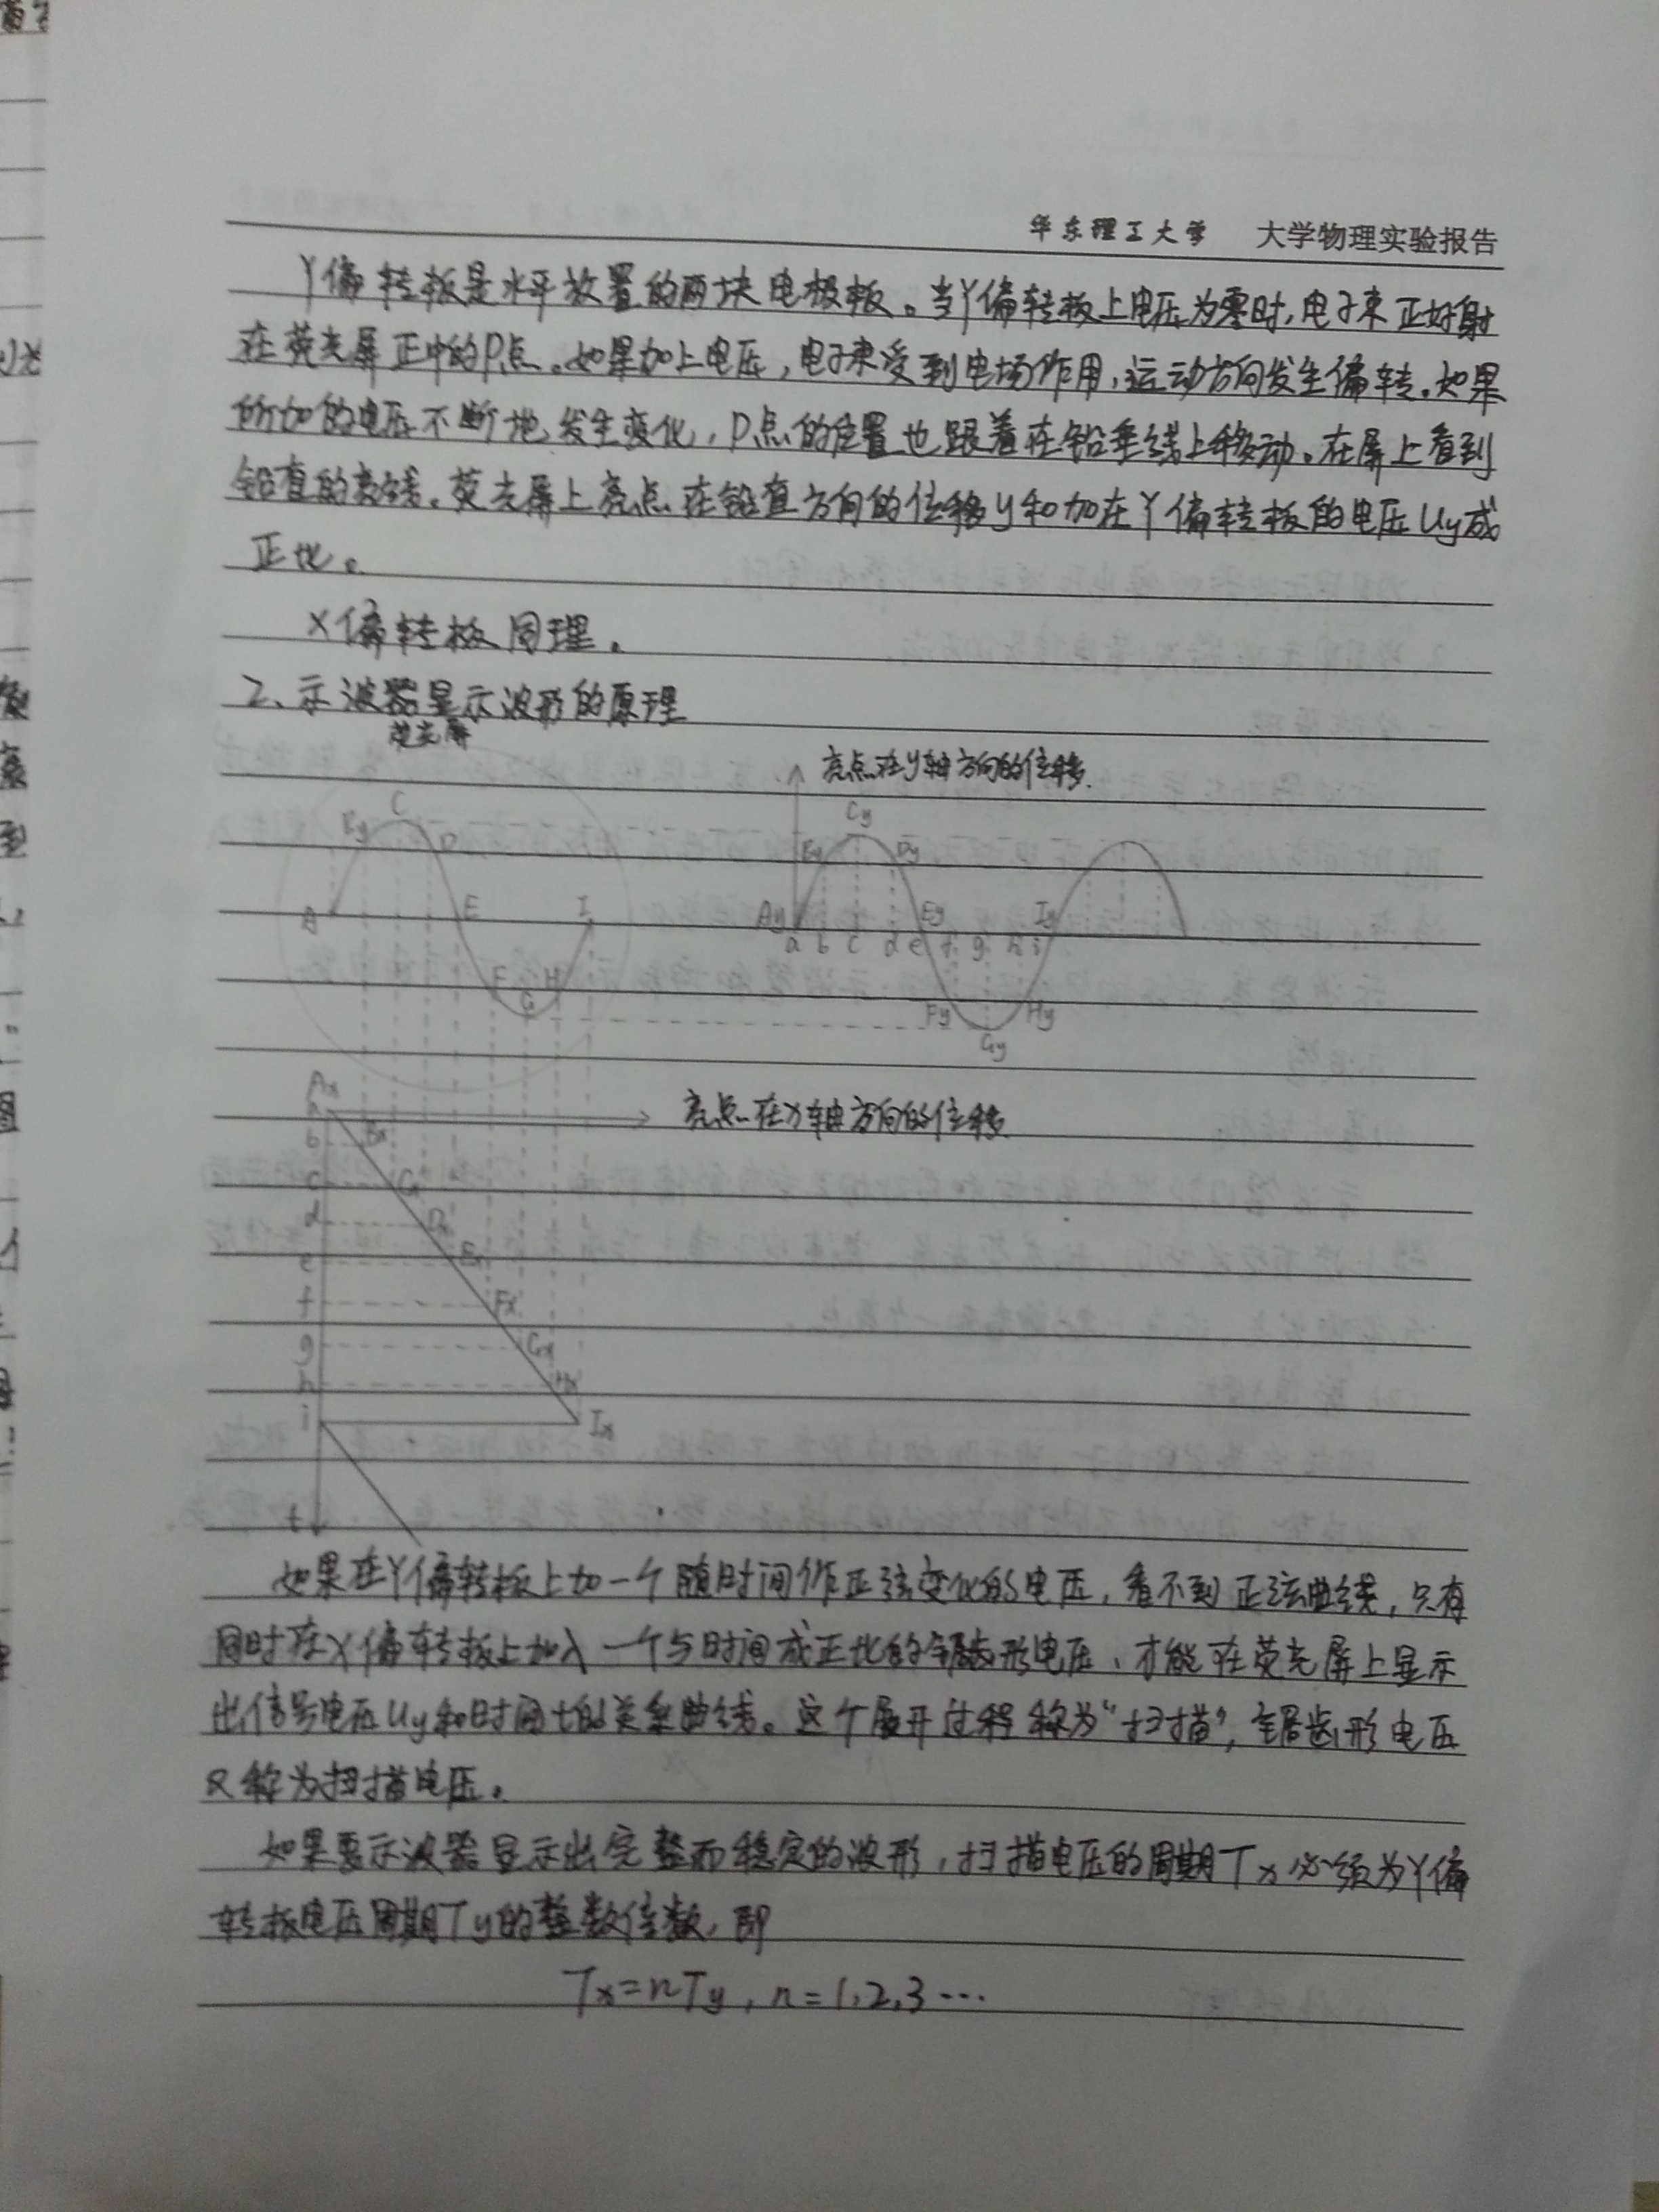 华东理工大学 大学物理实验报告
Y偏转板是水平放置的两块电极板。当Y偏转板上电压为零时,电子束正好射
在荧光屏正中的P点。如果加上电压,电子束受到电场作用,运动方向发生偏转。如果
所加的电压不断地发生变化,P点的位置也跟着在铅垂线上移动。在屏上看到
铅直的亮线。荧光屏上亮点在铅直方向的位移y和加在Y偏转板的电压Uy成
正比。
X偏转板同理。
2、示波器显示波形的原理
荧光屏
亮点在y轴方向的位移
C
By
D
Cy
By Dy
A E I
Ay Ey Iy
a b c d e f g h i
F G H
Fy Hy
Gy
Ax
a
亮点在x轴方向的位移
b Bx
c Cx
d Dx
e Ex
f Fx
g Gx
h Hx
i Ix
t
如果在Y偏转板上加一个随时间作正弦变化的电压,看不到正弦曲线,只有
同时在X偏转板上加入一个与时间成正比的锯齿形电压,才能在荧光屏上显示
出信号电压Uy和时间t的关系曲线。这个展开过程称为“扫描”,锯齿形电压
又称为扫描电压。
如果要示波器显示出完整而稳定的波形,扫描电压的周期Tx必须为Y偏
转板电压周期Ty的整数倍数,即
Tx=nTy, n=1,2,3…